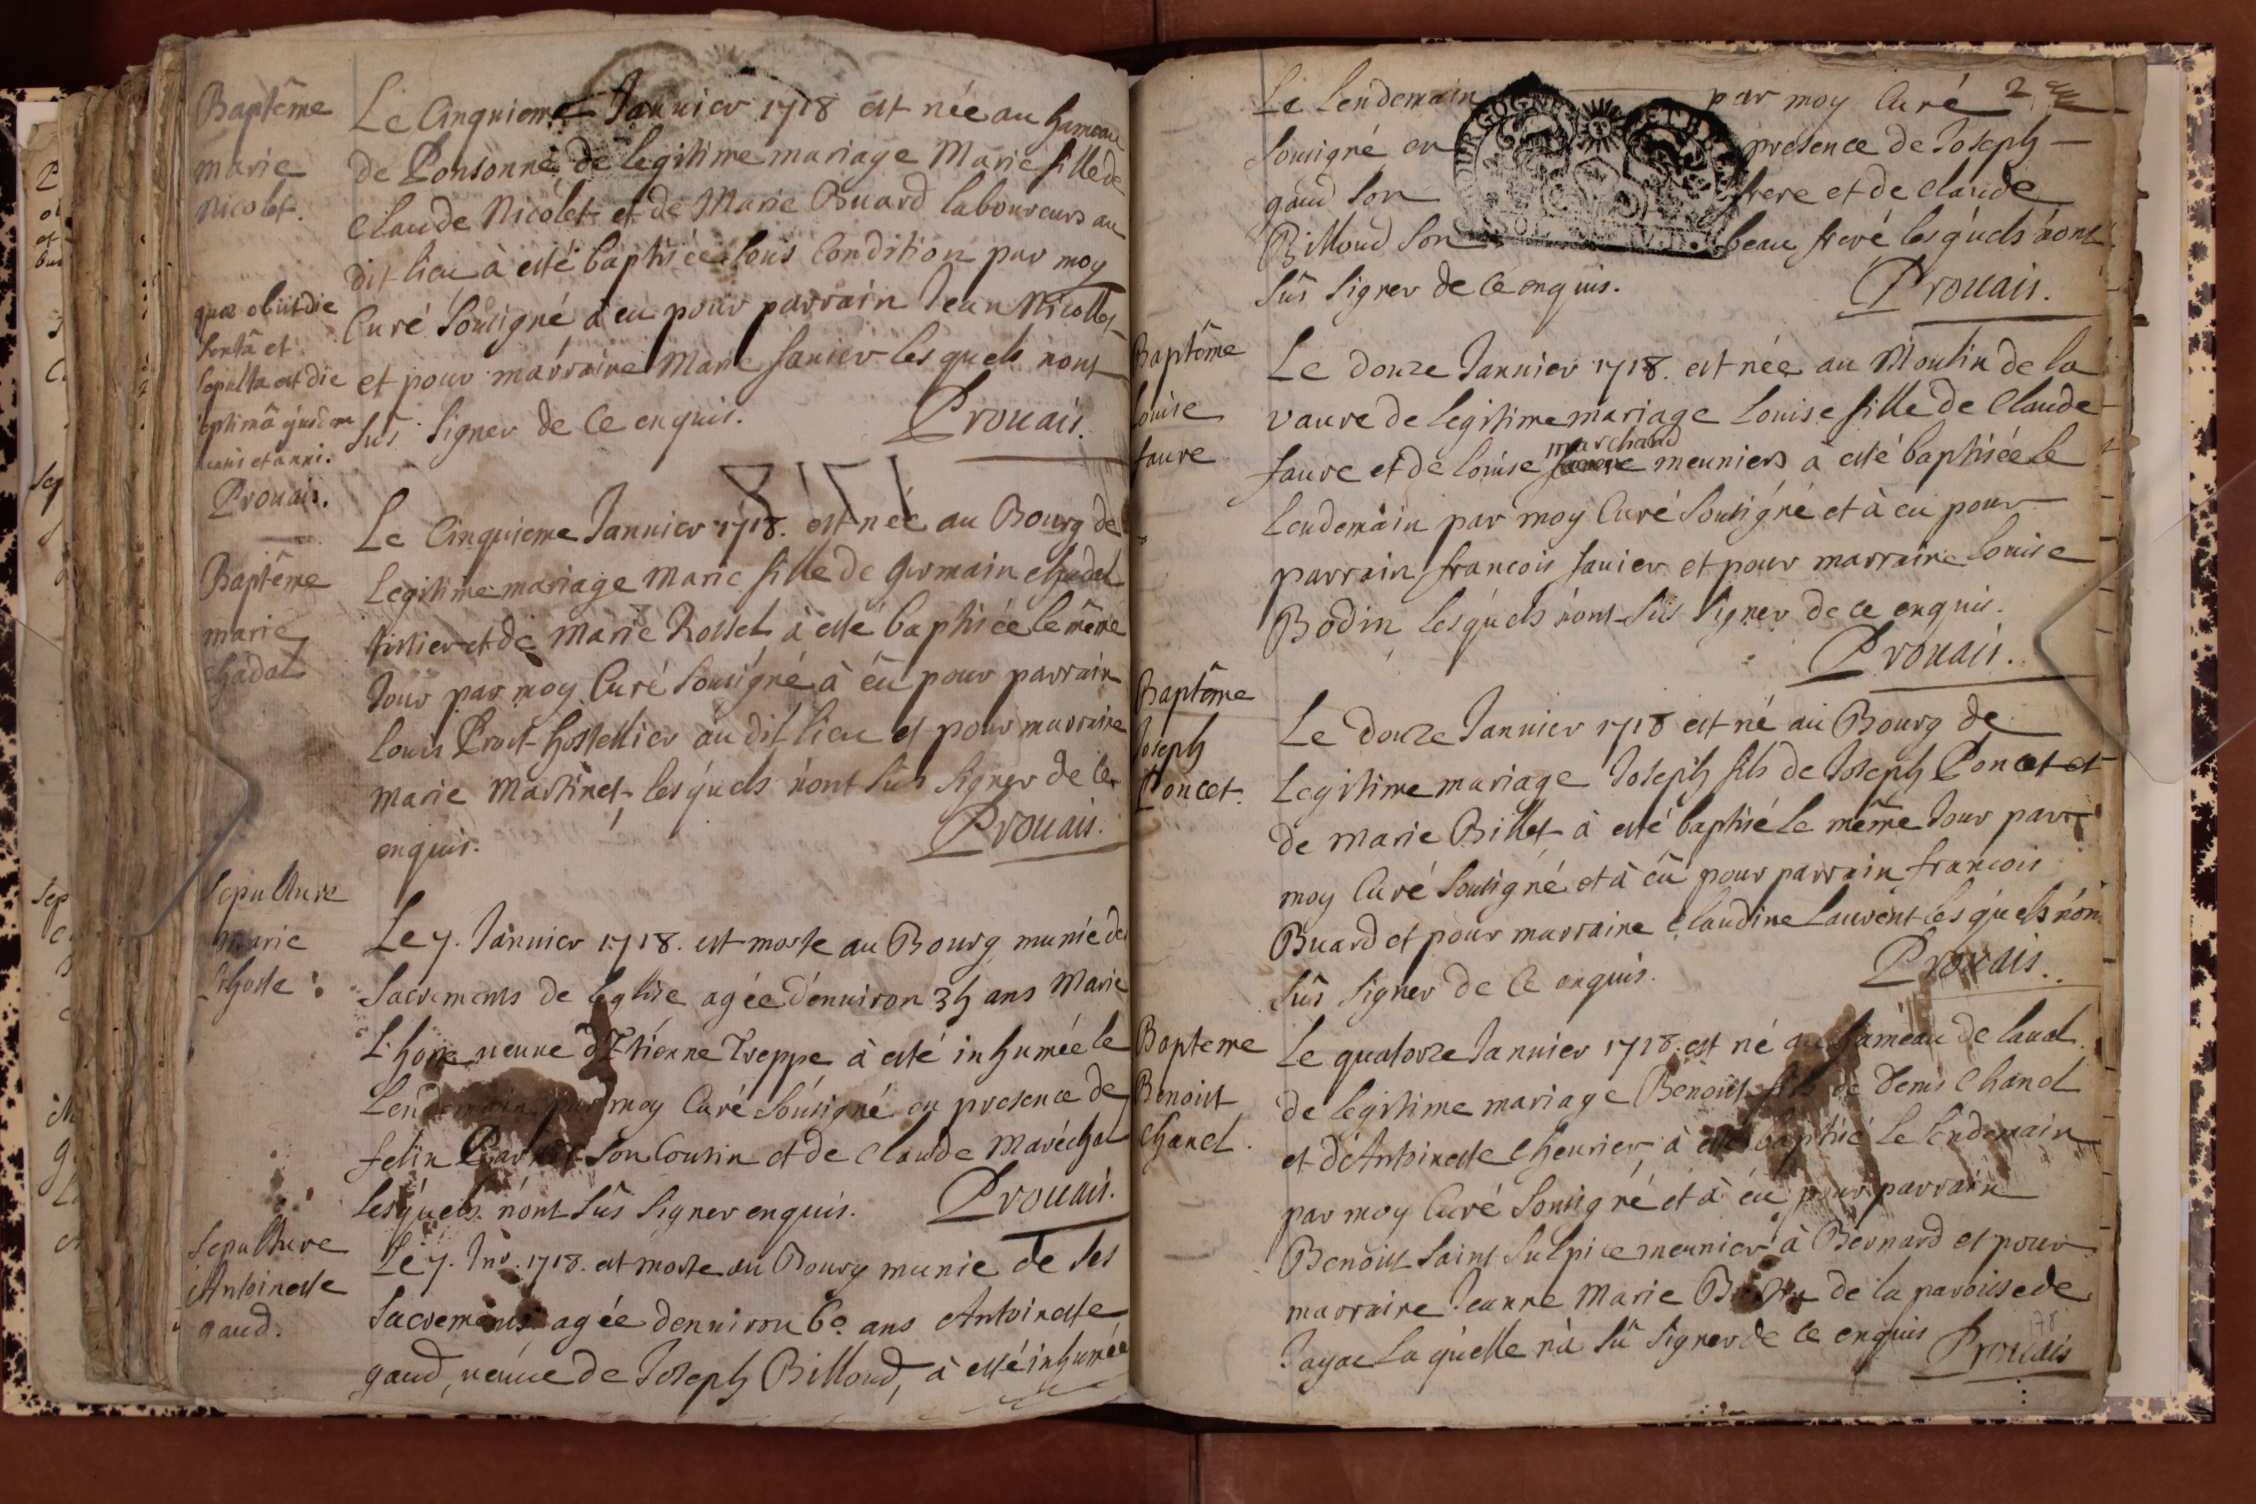 Baptême
marie
Nicolet.
Le Cinquieme Jannier 1718 est née au hameau
de Ponsonne, de legitime mariage Marie fille de
Claude Nicolet et de Marie Buard laboureurs au
dit lieu à esté baptisée sous Condition par moy
Curé Sousigné à eu pour parrain Jean Nicollet
et pour marraine Marie Janier lesquels nont
sus signer de ce enquis. Prouais.
quae obiit die
sextâ et
sepulta est die
septimâ ejusdem
mensis et anni.
Prouais.
1718
Baptême
marie
chadal
Le Cinquieme Jannier 1718. est née au Bourg de
Legitime mariage Marie fille de Germain chadal
tissier et de Marie Rosset à esté baptisée le même
Jour par moy Curé Sousigné à eû pour parrain
Louis Prost hostellier au dit lieu et pour marraine
Marie Martinet lesquels n'ont sûs signer de ce
enquis. Prouais.
Sepulture
marie
L'hoste
Le 7. Jannier 1718. est morte au Bourg, munie de
Sacrements de l'eglise agée d'enuiron 35 ans Marie
L'hoste ueuue d'Etienne Treppe à esté inhumée le
Lendemain par moy Curé Sousigné en presence de
felin son Cousin et de Claude Maréchal
Lesquels n'ont sûs signer enquis. Prouais.
Sepulture
Antoinette
gaud.
Le 7. Jnv. 1718. est morte au Bourg munie de ses
Sacrements agée d'enniron 60 ans Antoinette
gaud, ueuue de Joseph Billoud, à esté inhumée
Le Lendemain par moy Curé 2
Sousigné en presence de Joseph
gaud son frere et de Claude
Billoud son beau frere lesquels n'ont
sûs signer de ce enquis. Prouais.
Baptême
Louise
faure
Le douze Jannier 1718. est née au Moulin de la
vaure de legitime mariage Louise fille de Claude
marchand
faure et de Louise meuniers à esté baptisée le
Lendemain par moy Curé Sousigné et à eu pour
parrain francois Janier et pour marraine Louise
Bodin lesquels n'ont sûs signer de ce enquis.
Prouais.
Baptême
Joseph
Poncet.
Le douze Jannier 1718 est né au Bourg de
Legitime mariage Joseph fils de Joseph Poncet et
de Marie Billet à esté baptisé le même Jour par
moy Curé Sousigné et à eû pour parrain francois
Buard et pour marraine Claudine Laurent lesquels n'ont
sûs signer de ce enquis. Prouais.
Bapteme
Benoist
Chanel.
Le quatorze Jannier 1718. est né au hameau de laual
de legitime mariage Benoist fils de Denis Chanel
et d'Antoinette Cheurier, à esté baptisé le lendemain
par moy Curé Sousigné et à eu pour parrain
Benoist Saint Sulpice meunier à Bernard et pour
marraine Jeanne Marie de la paroisse de
Jayac La quelle n'a sû signer de ce enquis Prouais
178